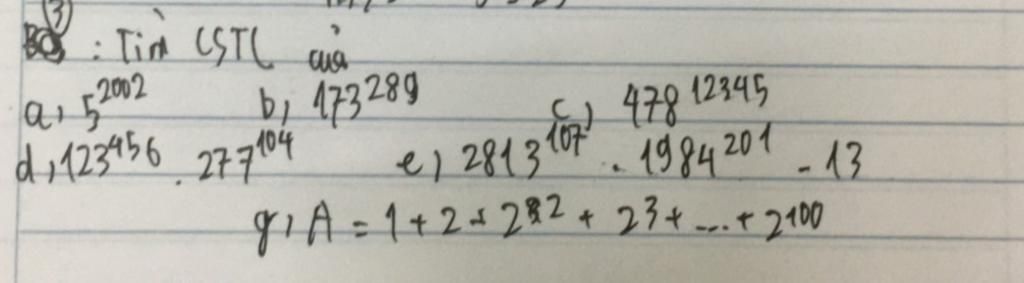 B3: Tìm CSTC của
a, 5^2002 b, 173^289 c, 478^12345
d, 123^456 . 277^104 e, 2813^107 . 1984^201 - 13
g, A = 1 + 2 + 2^2 + 2^3 + ... + 2^100